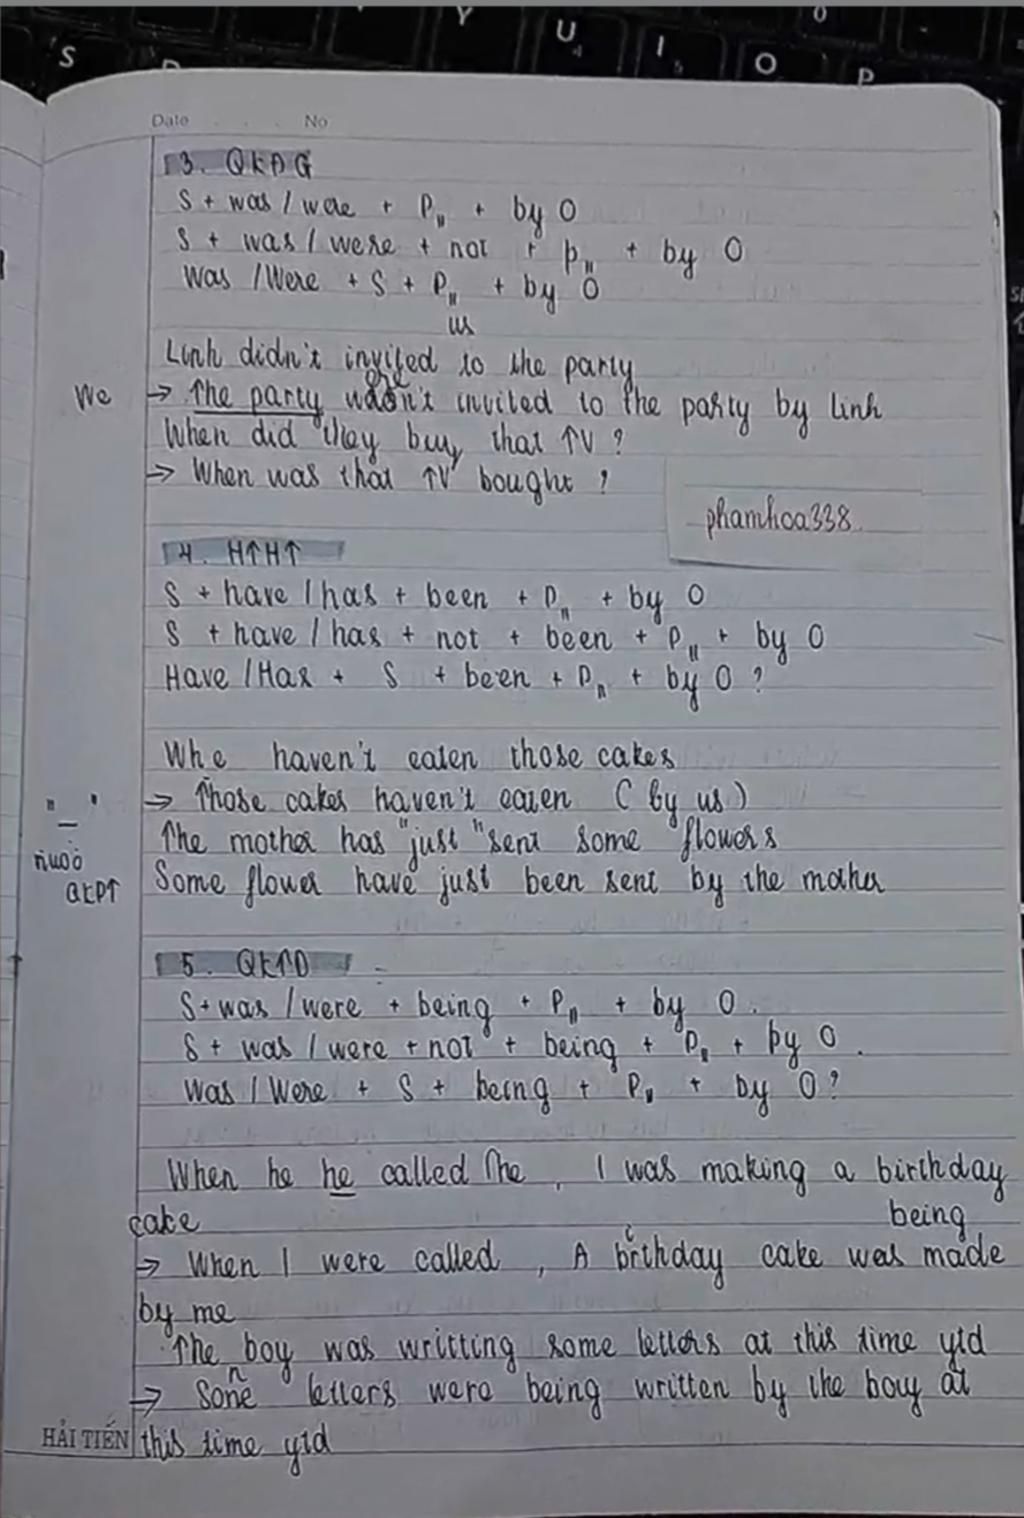 S
Y
U
I
O
P
Date No
3. QKĐG
S + was / were + PII + by O
S + was / were + not + PII + by O
Was / Were + S + PII + by O
us
Linh didn't invited to the party
ere
We → The party wasn't invited to the party by Linh
When did they buy that TV ?
→ When was that TV bought ?
phamhoa338
4. HTHT
S + have / has + been + PII + by O
S + have / has + not + been + PII + by O
Have / Has + S + been + PII + by O ?
Whe haven't eaten those cakes
→ Those cakes haven't eaten ( by us )
The mother has "just" sent some flowers
Some flower have just been sent by the mother
5. QKTD
S + was / were + being + PII + by O .
S + was / were + not + being + PII + by O .
Was / Were + S + being + PII + by O ?
When he he called The , I was making a birthday
cake being
→ When I were called , A birthday cake was made
by me
The boy was writting some letters at this time ytd
→ Some letters were being written by the boy at
HẢI TIẾN this time ytd